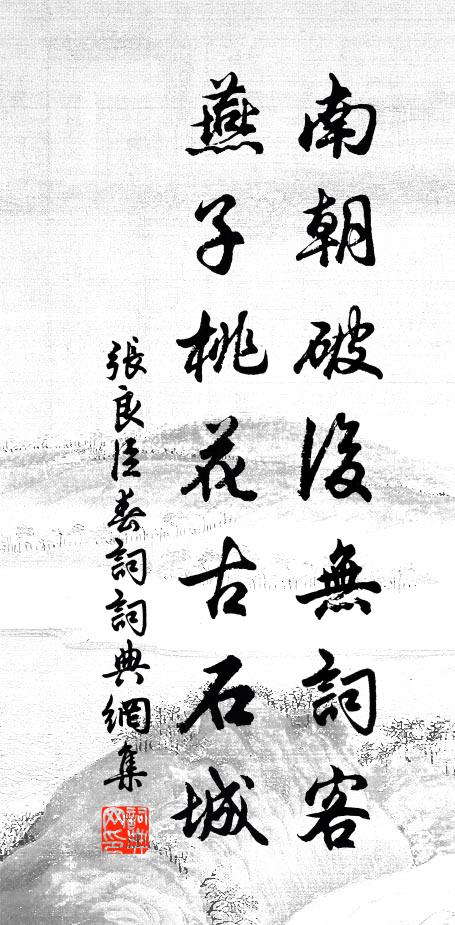 南朝破後無詞客
燕子桃花古石城
張良臣春詞詞典網集